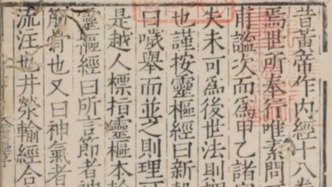 昔黃帝作內經十八卷
焉世所奉行唯素問
甫謐次而為甲乙諸家
失未可為後世法則謂
也謹按靈樞經曰新穀
曰噦舉而並之則理可
是越人標指靈樞本輸
靈樞經曰所言節者神
筋骨也又曰神氣者
流注也井滎輸經合